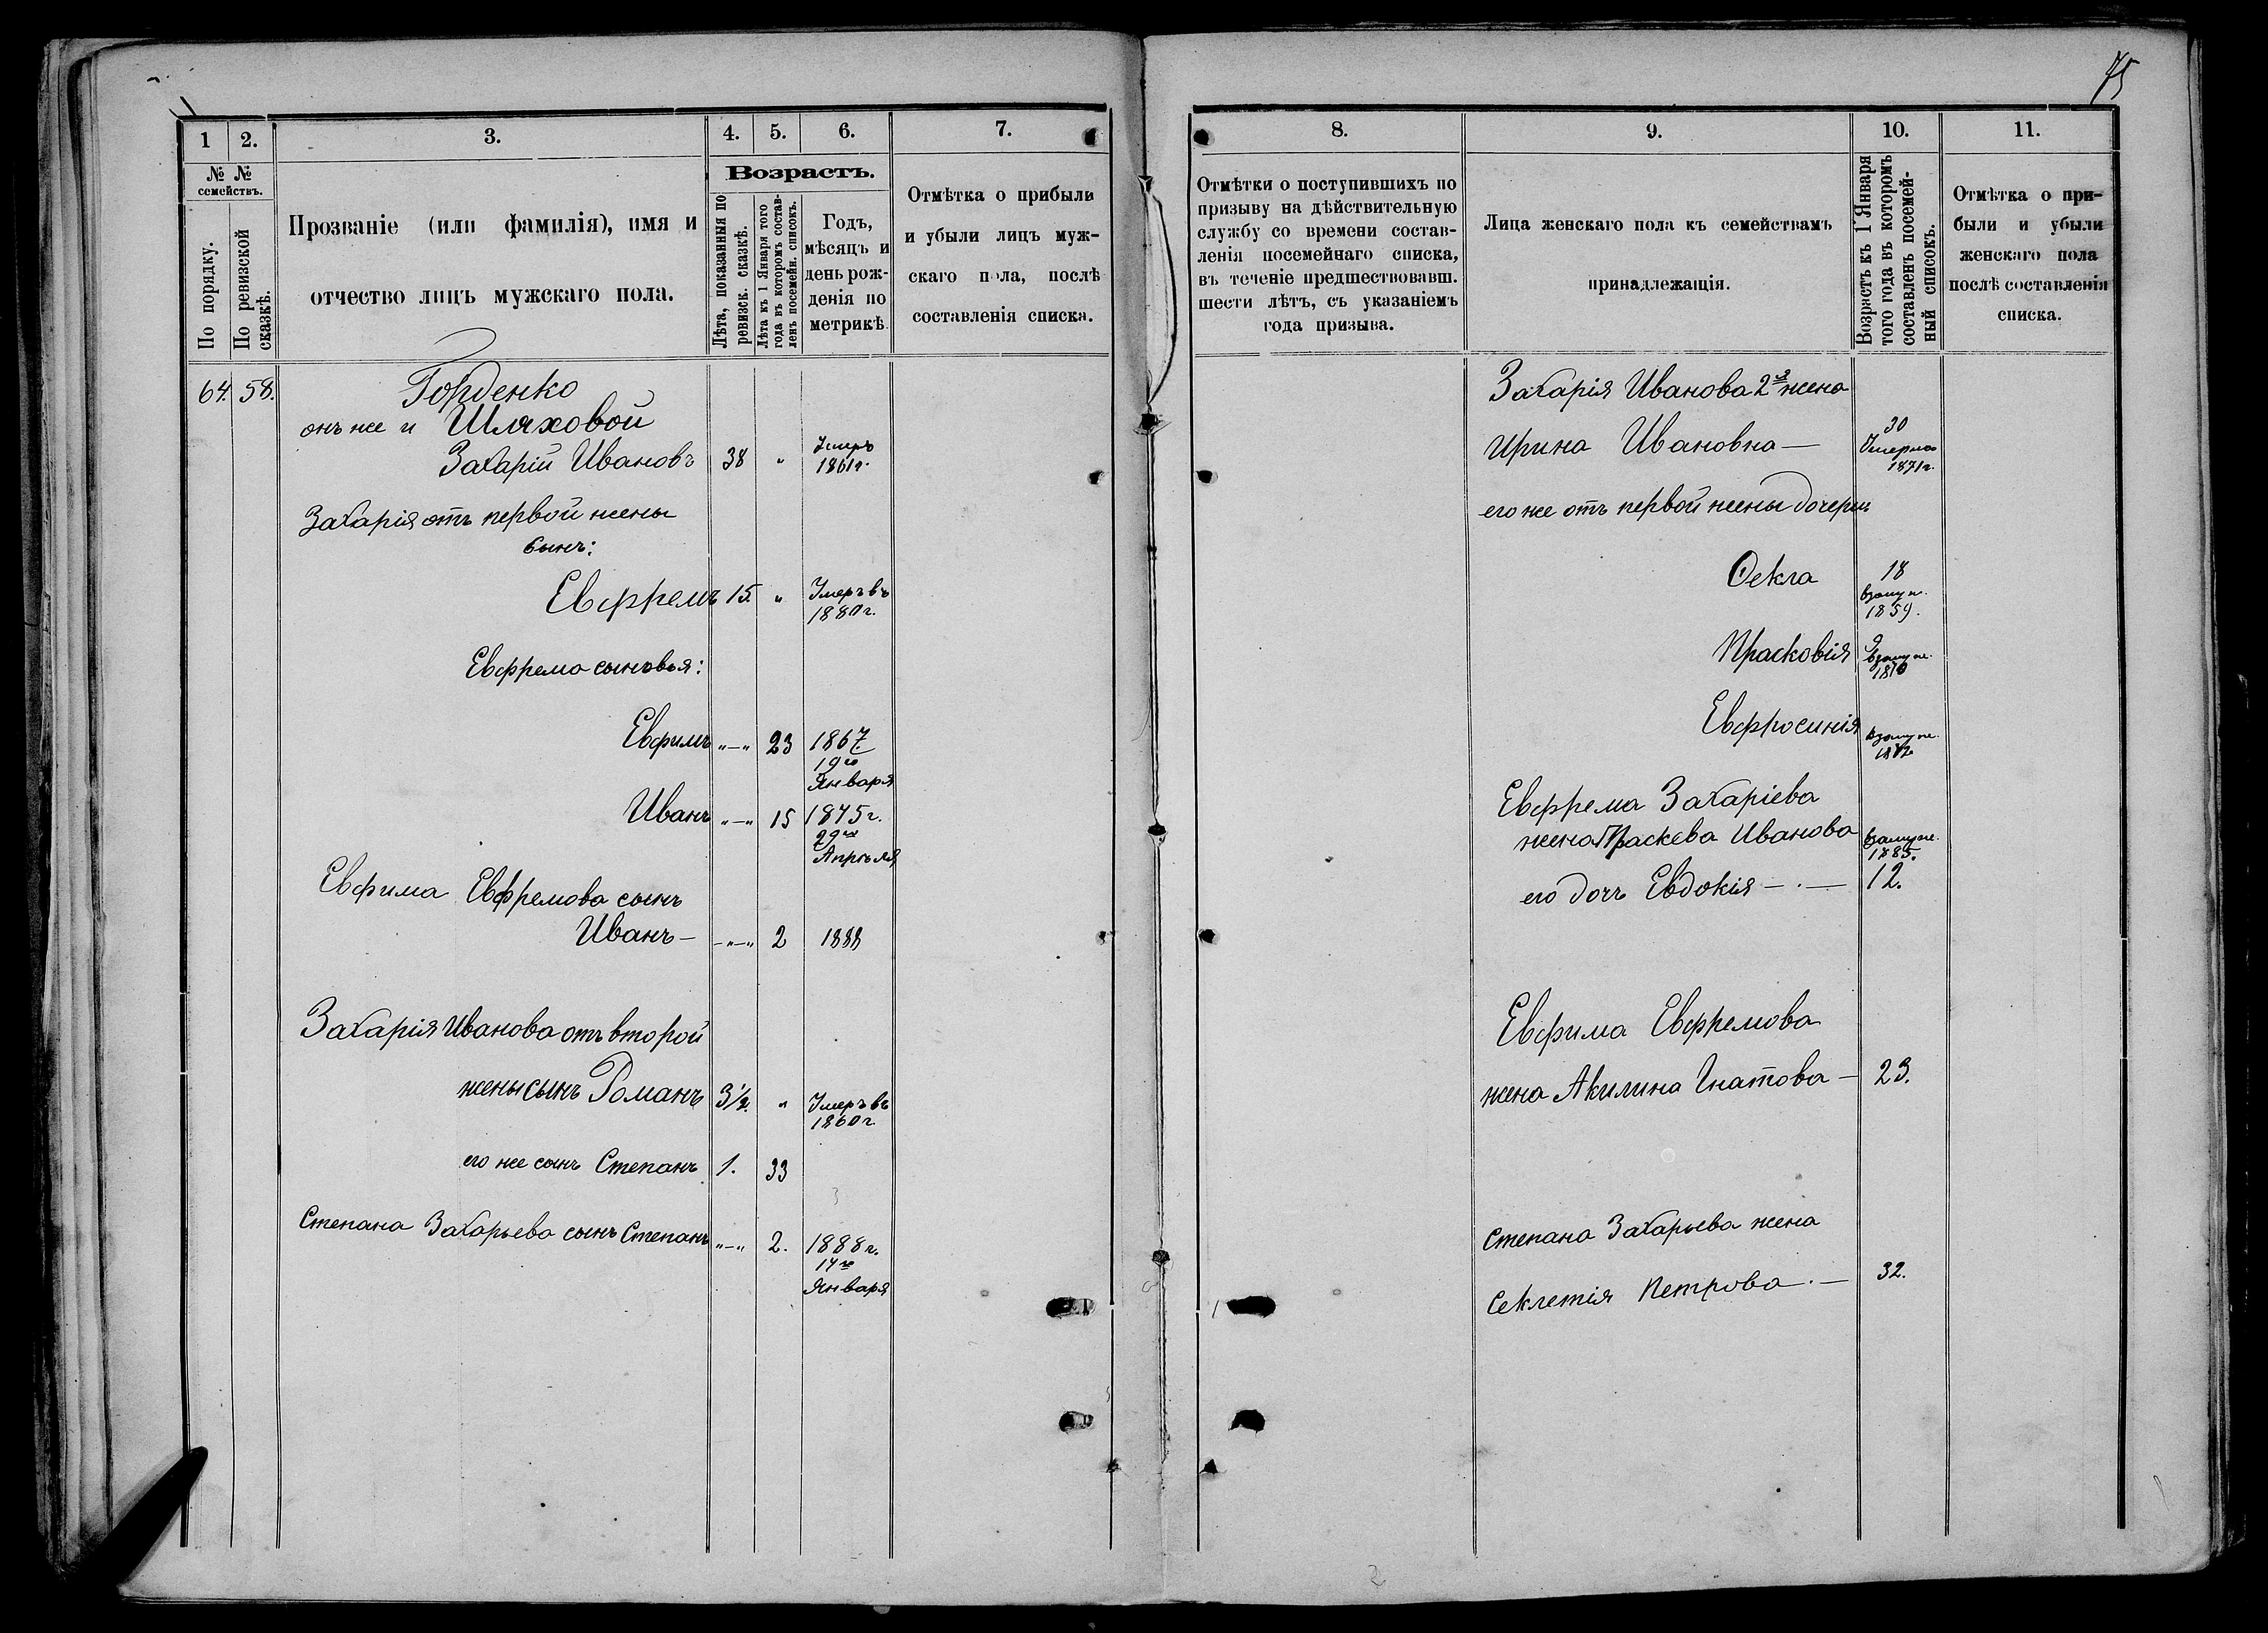 75
1
2.
3.
4.
5.
6.
7.
№ №
семействъ.
По порядку.
По ревизской сказкѣ.
Прозваніе (или фамилія), имя и
отчество лицъ мужскаго пола.
Возрастъ.
Лѣта, показанныя по
ревизск. сказкѣ.
Лѣта къ 1 Января того
года въ которомъ состав-
ленъ посемейн. списокъ.
Годъ,
мѣсяцъ и
день рож-
денія по
метрикѣ
Отмѣтка о прибыли
и убыли лицъ муж-
скаго пола, послѣ
составленія списка.
64. 58.
Горденко
онъ же и Шляховой
Захарій Ивановъ 38 " Умеръ
1861г.
Захарія отъ первой жены
сынъ:
Евффремъ 15. " Умеръ въ
1880г.
Евффрема сыновья:
Евфимъ "—" 23 1867.
19го
Января
Иванъ "—" 15 1875г.
29го
Апрѣля
Евфима Евфремова сынъ
Иванъ — —"—" 2 1888
Захарія Иванова отъ второй
жены сынъ Романъ 3½. " Умеръ въ
1860г.
его же сынъ Степанъ 1. 33
Степана Захарьева сынъ Степанъ "—" 2. 1888г.
14го
Января
8.
9.
10.
11.
Отмѣтки о поступившихъ по
призыву на дѣйствительную
службу со времени состав-
ленія посемейнаго списка,
въ теченіе предшествовавш.
шести лѣтъ, съ указаніемъ
года призыва.
Лица женскаго пола къ семействамъ
принадлежащія.
Возрастъ къ 1 Января
того года въ которомъ
составленъ посемей-
ный списокъ.
Отмѣтка о при-
были и убыли
женскаго пола
послѣ составленія
списка.
Захарія Иванова 2я жена
Ирина Ивановна — 30
Умерла
1871г.
его же отъ первой жены дочери
Өекла 18
взамуж.
1859.
Прасковія 9
взамуж.
1870
Евффосинія взамуж.
Евффрема Захаріева
жена Праскева Иванова взамуж.
1885.
его дочь Евдокія — . — 12.
Евфима Евффремова
жена Акилина Гнатова — 23.
Степана Захарьева жена
Секлетія Петрова . — 32.